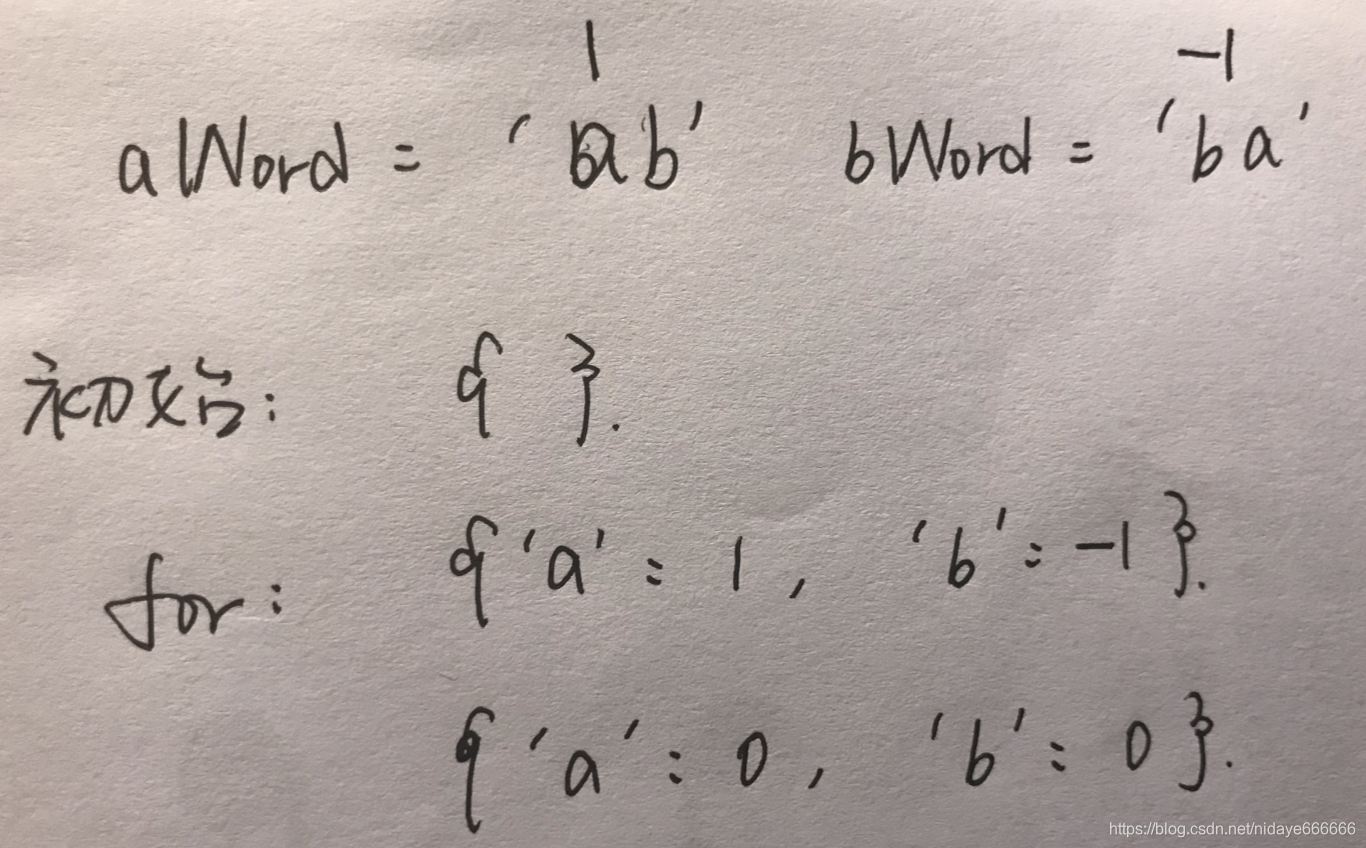 1 -1
aWord = 'ab' bWord = 'ba'
初始: { }.
for: {'a': 1, 'b': -1}.
{'a': 0, 'b': 0}.
https://blog.csdn.net/nidaye666666